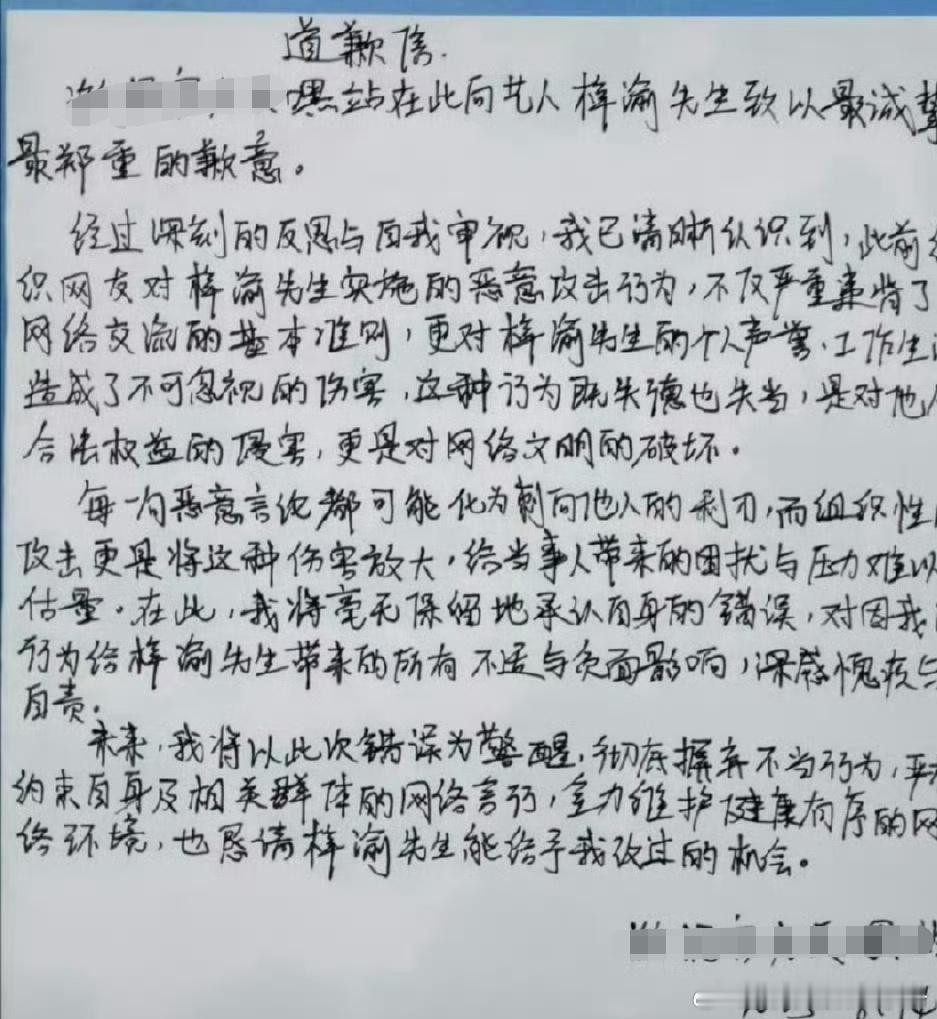 道歉信.
黑站在此向艺人梓渝先生致以最诚挚
最郑重的歉意。
经过深刻的反思与自我审视，我已清晰认识到，此前组
织网友对梓渝先生实施的恶意攻击行为，不仅严重违背了
网络交流的基本准则，更对梓渝先生的个人声誉、工作生活
造成了不可忽视的伤害，这种行为既失德也失当，是对他人
合法权益的侵害，更是对网络文明的破坏。
每一句恶意言论都可能化为刺向他人的利刃，而组织性
攻击更是将这种伤害放大，给当事人带来的困扰与压力难以
估量。在此，我将毫无保留地承认自身的错误，对因我
行为给梓渝先生带来的所有不适与负面影响，深感愧疚与
自责。
未来，我将以此次错误为警醒，彻底摒弃不当行为，严格
约束自身及相关群体的网络言行，全力维护健康有序的网
络环境，也恳请梓渝先生能给予我改过的机会。